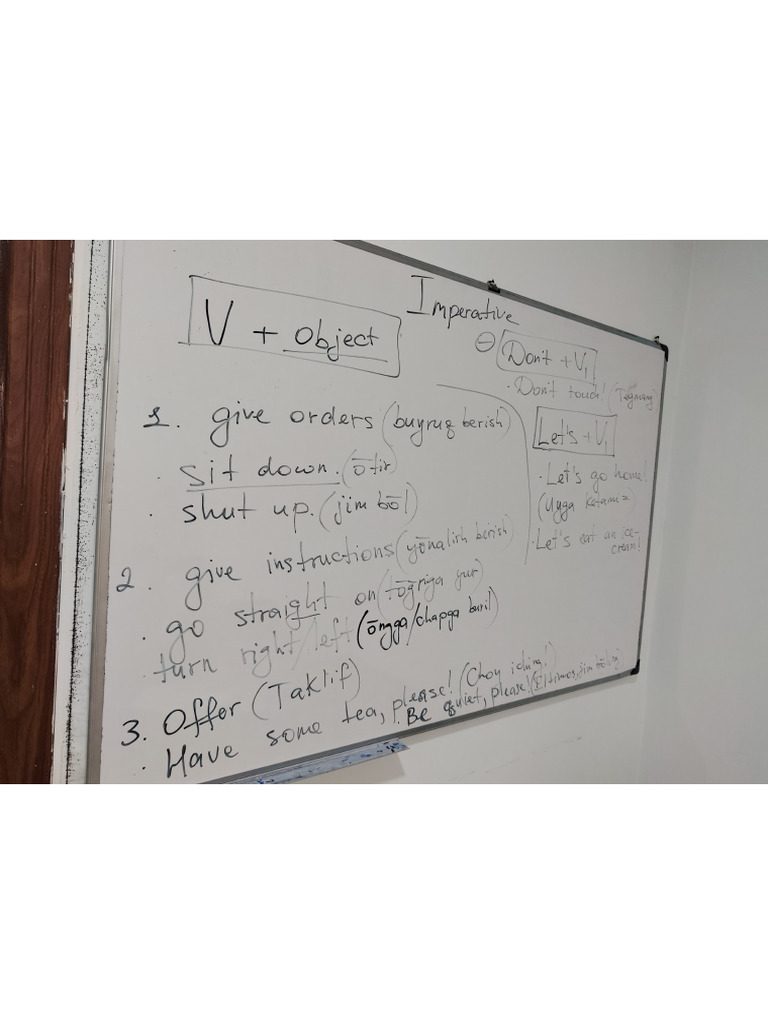 Imperative
V + Object
1. give orders (buyruq berish)
· sit down. (ōtir)
· shut up. (jim bōl)
2. give instructions (yōnalish berish)
· go straight on (tōgriga yur)
· turn right/left (ōngga/chapga buril)
3. Offer (Taklif)
· Have some tea, please! (Choy iching!)
· Be quiet, please! (Iltimos, jim bōling)
⊖ Don't + V1
· Don't touch! (Tegmang)
Let's + V1
· Let's go home!
(Uyga ketamiz)
· Let's eat an ice-
cream!